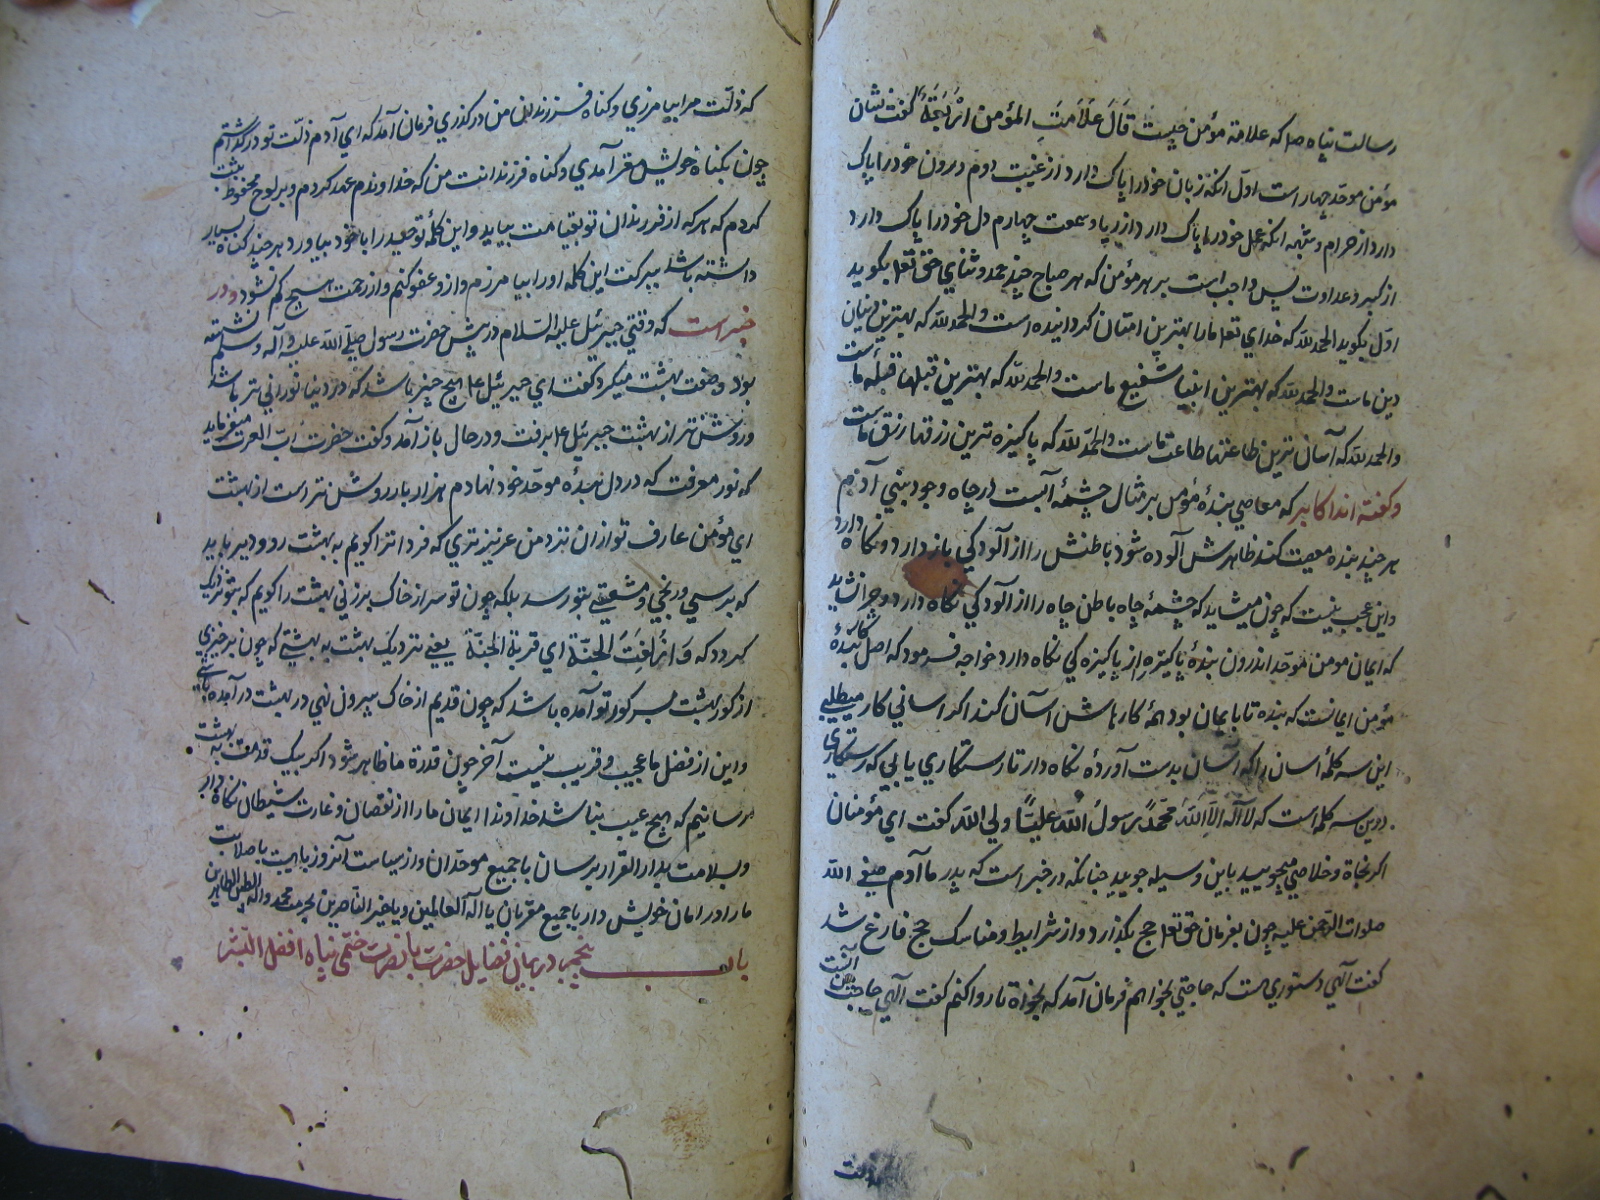 رسالت پناه صلا که علامة مؤمن چیست قَالَ عَلَامَتِ المؤمن اَرْبَعَةٌ گفت نشان
مؤمن موحد چهار است اول انکه زبان خود را پاک دارد از غیبت دوم درون خود را پاک
دارد از حرام و شبهه انکه عمل خود را پاک دارد از ریا و سمعت چهارم دل خود را پاک دارد
از کبر و عداوت پس واجب است بر هر مؤمن که هر صباح چند حمد و ثنای حق تعا بگوید
اول بگوید الحمد لله که خدای تعا ما را بهترین امتان گردانیده است والحمد لله که بهترین دینان
دین ماست والحمد لله که بهترین انبیا شفیع ماست والحمد لله که بهترین قبلها قبلهٔ ماست
والحمد لله که آسان ترین طاعتها طاعت ماست والحمد لله که پاکیزه ترین رزقها رزق ماست
و گفته اند اکابر که معاصی بندهٔ مؤمن بر مثال چشمهٔ آبست در چاه وجود بنی آدم
هر چند بنده معصیت کند ظاهرش آلوده شود باطنش را از آلودکی باز دارد و نکاه دارد
و این عجب نیست که چون میشاید که چشمهٔ چاه باطن چاه را از آلودکی نکاه دارد و چرا نشاید
که ایمان مومن موحد اندرون بندهٔ پاکیزه را از پاکیزه کی نکاه دارد خواجه فرمود که اصل کار بندهٔ
مؤمن ایمانست که بنده تا با ایمان بود همهٔ کارهاش آسان کند اکر اسانی کار میطلبی
این سه کلمهٔ اسان را که آسان بدست آوردهٔ نکاه دار تا رستکاری یابی که رستکاری
درین سه کلمه است که لا اله الا الله محمدًا رسول الله علیًا ولی الله گفت ای مؤمنان
اکر نجاة و خلاصی میجویید باین وسیله جویید چنانکه در خبر است که پدر ما آدم صفی الله
صلوات الرحمن علیه چون بفرمان حق تعا حج بگذارد و از شرایط و مناسک حج فارغ شد
گفت آلهی دستوری هست که حاجتی بخواهم فرمان آمد که بخواه تا روا کنم گفت آلهی حاجت من آنست
که زلّت مرا بیامرزی و کناه فرزندان من در گذری فرمان آمد که ای آدم زلّت تو در گذشتم
چون بکناه خویش مقر آمدی و کناه فرزندانت من که خداوندم عهد کردم و بر لوح محفوظ ثبت
کردم که هر که از فرزندان تو بقیامت بیاید و این کلمهٔ توحید را با خود بیاورد هر چند کناه بسیار
داشته باشد ببرکت این کلمه او را بیامرزم و از و عفو کنم و از رحمت هیچ کم نشود و در
خبر است که وقتی جبرئیل علیه السلام در پیش حضرت رسول صلی الله علیه و آله وسلم نشسته
بود وصفت بهشت میکرد گفت ای جبرئیل علا هیچ چیز باشد که در دنیا نورانی تر باشد
و روشن تر از بهشت جبرئیل علا برفت و در حال باز آمد و گفت حضرت رب العزت میفرماید
که نور معرفت که در دل بندهٔ موحد خود نهادم هزار بار روشن تر است از بهشت
ای مؤمن عارف تو از ان نزد من عزیز تری که فردا ترا کویم به بهشت رو و دیر باید
که برسی و رنجی و مشقتی بتو رسد بلکه چون تو سر از خاک برزنی بهشت را کویم که بتو نزدیک
کردد که وَ اُزْلِفَتِ الجَنَّة ای قربة الجنّة یعنی نزدیک بهشت به بهشتی که چون برخیزی
از کور بهشت بسر کور تو آمده باشد که چون قدم از خاک بیرون نهی در بهشت در آمده باشی
و این از فضل ما عجیب و قریب نیست آخر چون قدرة ما ظاهر شود اکر بیک قدمت به بهشت
رسانیم که هیچ عیب نباشد خداوندا ایمان ما را از نقصان و غارت شیطان نکاه دار
و بسلامت بدار القرار برسان با جمیع موحدان و از سیاست آنروز باهیبت باصلابت
ما را در امان خویش دار با جمیع مقربان یا اله العالمین و یا خیر الناصرین بحرمت محمد واله الطیبین الطاهرین
باب پنجم در بیان فضایل حضرت بانصرت ختمی پناه افضل البشر